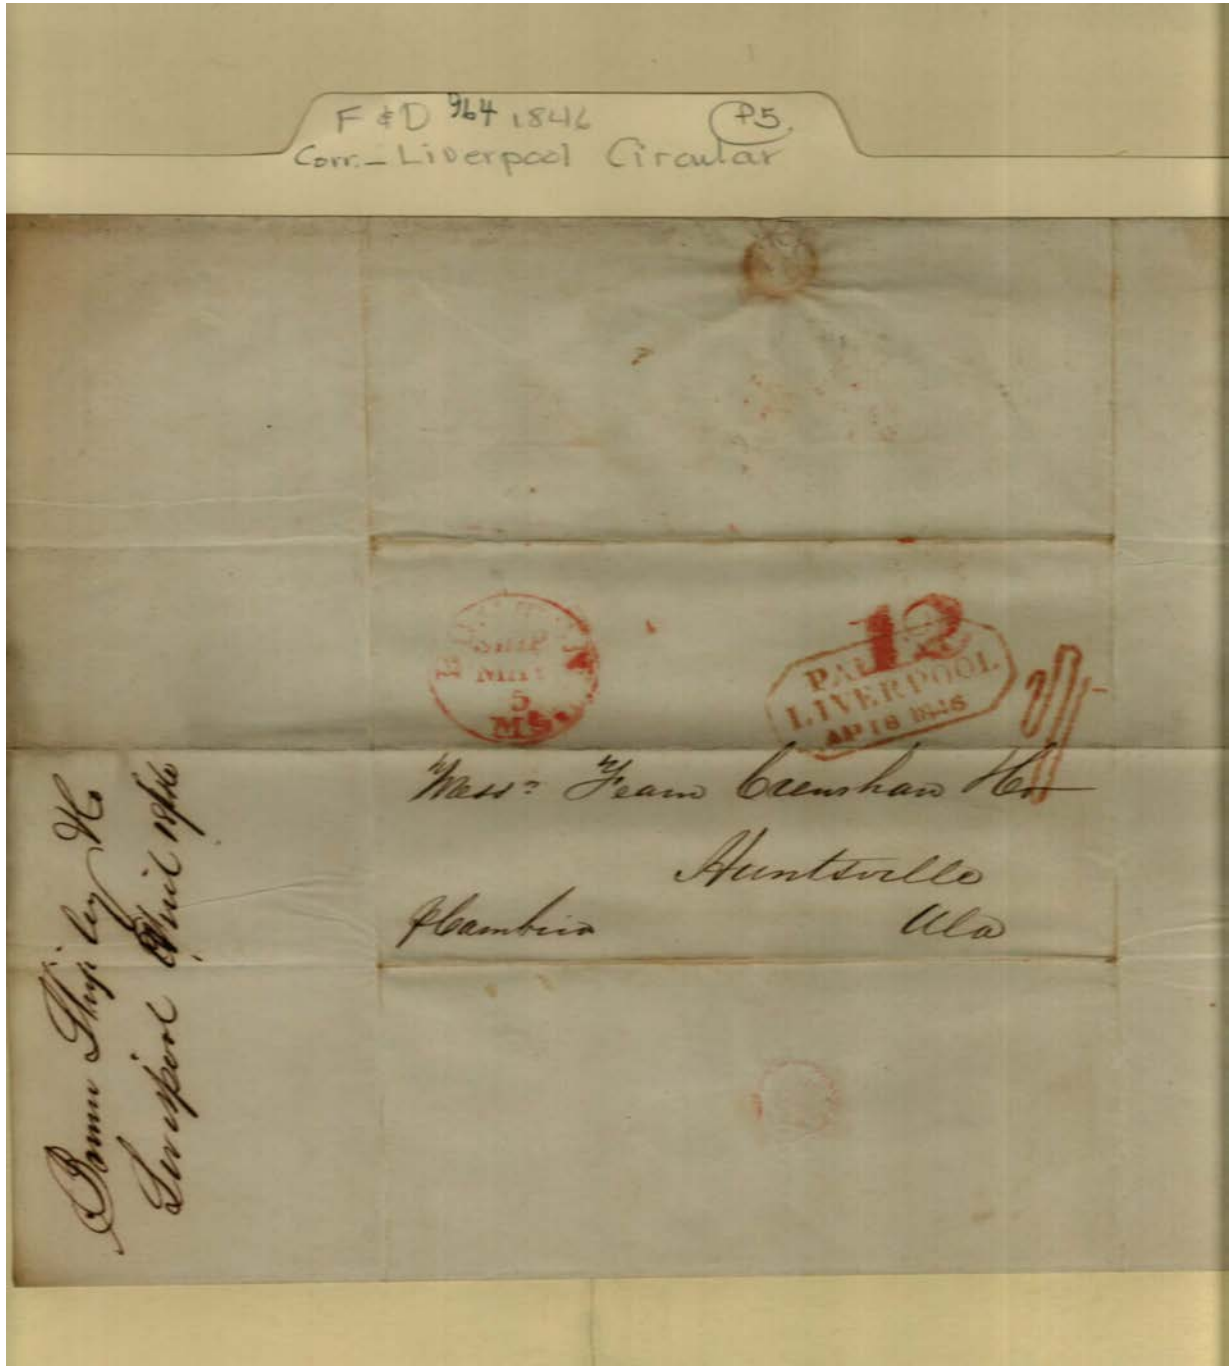 F & D 964 1846 P5.
Corr. - Liverpool Circular
SHIP
5
MS.
12
PAID
LIVERPOOL
AP 18 1846
Mess.rs Fearn Crenshaw & Co
Huntsville
Ala
p Cambria
Brown Shipley & Co
Liverpool April 1846